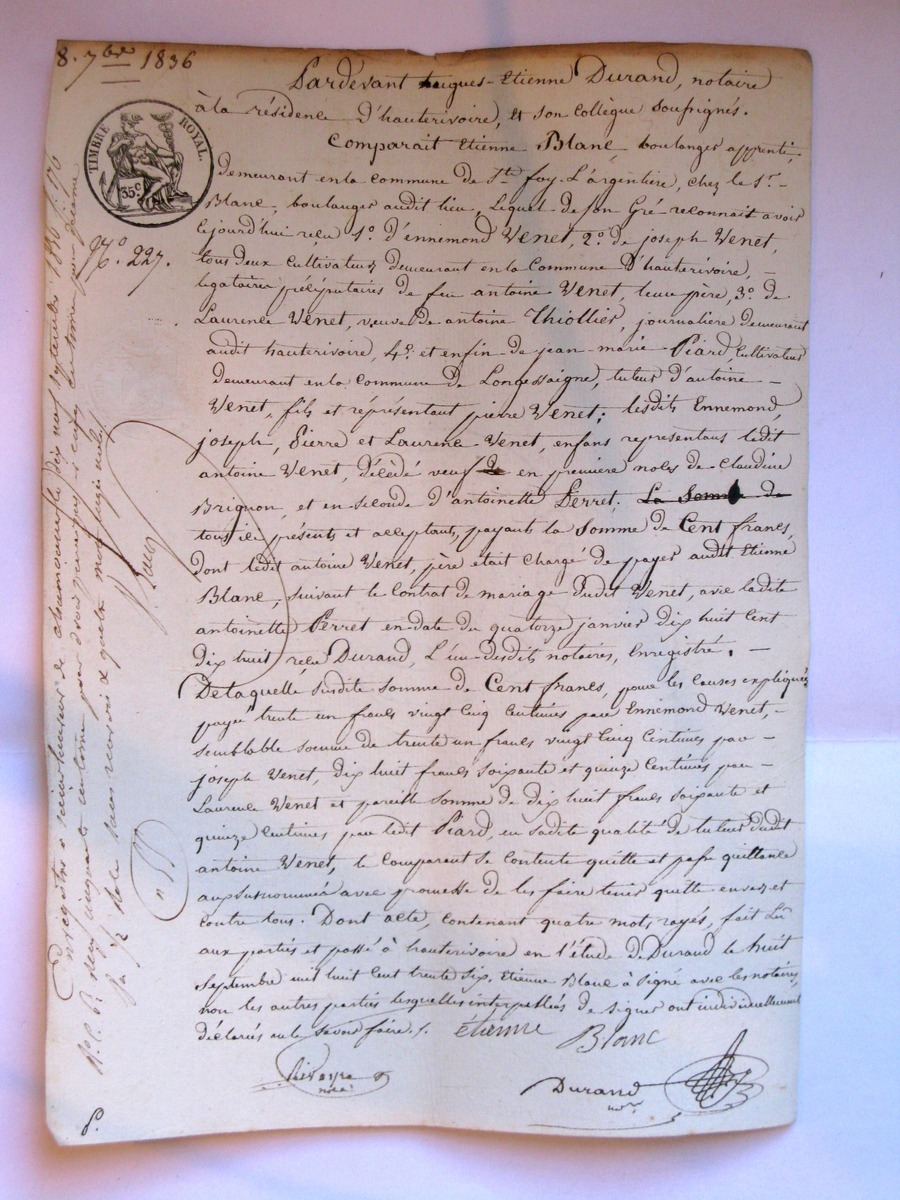 8. 7bre 1836
TIMBRE ROYAL.
35 c
N.o 227.
Pardevant hugues-Etienne Durand, notaire
à la résidence d'hauterivoire, et son collègue soussignés.
Comparait Etienne Blanc boulanger apprenti,
Demeurant en la commune de Ste foy L'argentière, chez le Sr. -
Blanc, boulanger audit lieu, Lequel de son Gré reconnait avoir
cejourd'hui reçu 1o. d'ennemond Venet, 2o. de joseph Venet,
tous deux cultivateurs demeurant en la Commune D'hauterivoire, -
légataires préciputaires de feu antoine Venet, leur père, 3o. de
Laurence Venet, veuve de antoine Thiollier, journalière demeurant
audit hauterivoire, 4o. et enfin de jean-marie Piard, Cultivateur
demeurant en la commune de Longessaigne, tuteur d'antoine -
Venet, fils et réprésentant pierre Venet; lesdits Ennemond,
joseph, Pierre et Laurence Venet, enfans représentans ledit
antoine Venet, décédé veuf en première noles de Claudine
Brignon, et en seconde d'antoinette Perret, La Somme de
tous ici présents et acceptant, payants la Somme de Cent francs,
dont ledit antoine Venet, père était chargé de payer audit Etienne
Blanc, suivant le contrat de mariage dudit Venet, avec ladite
antoinette Perret en date du quatorze janvier dix huit Cent
dix huit reçu Durand, L'un desdits notaires, Enregistré. -
De laquelle susdite somme de Cent francs, pour les causes expliquées
payée trente un francs vingt Cinq Centimes par Ennemond Venet, -
semblable somme de trente un francs vingt Cinq Centimes par -
joseph Venet, dix huit francs soixante et quinze Centimes par -
Laurence Venet et pareille somme de dix huit francs soixante et
quinze Centimes par ledit Piard, en sadite qualité de tuteur dudit
antoine Venet, le Comparant se Contente quitte et passe quittance
aux susnommés avec promesse de les faire tenir quitte envers et
contre tous. Dont acte, contenant quatre mots rayés, fait Lu
aux parties et passé à hauterivoire en l'étude de Durand le huit
Septembre mil huit Cent trente Six. Etienne Blanc à Signé avec les notaires,
non les autres parties lesquelles interpellées de Signer ont individuellement
déclarés ne le Savoir faire./.
étienne
Blanc
Durand
nore
Enregistré à St Laurent de chamousset le dix neuf septembre 1836 f. 170